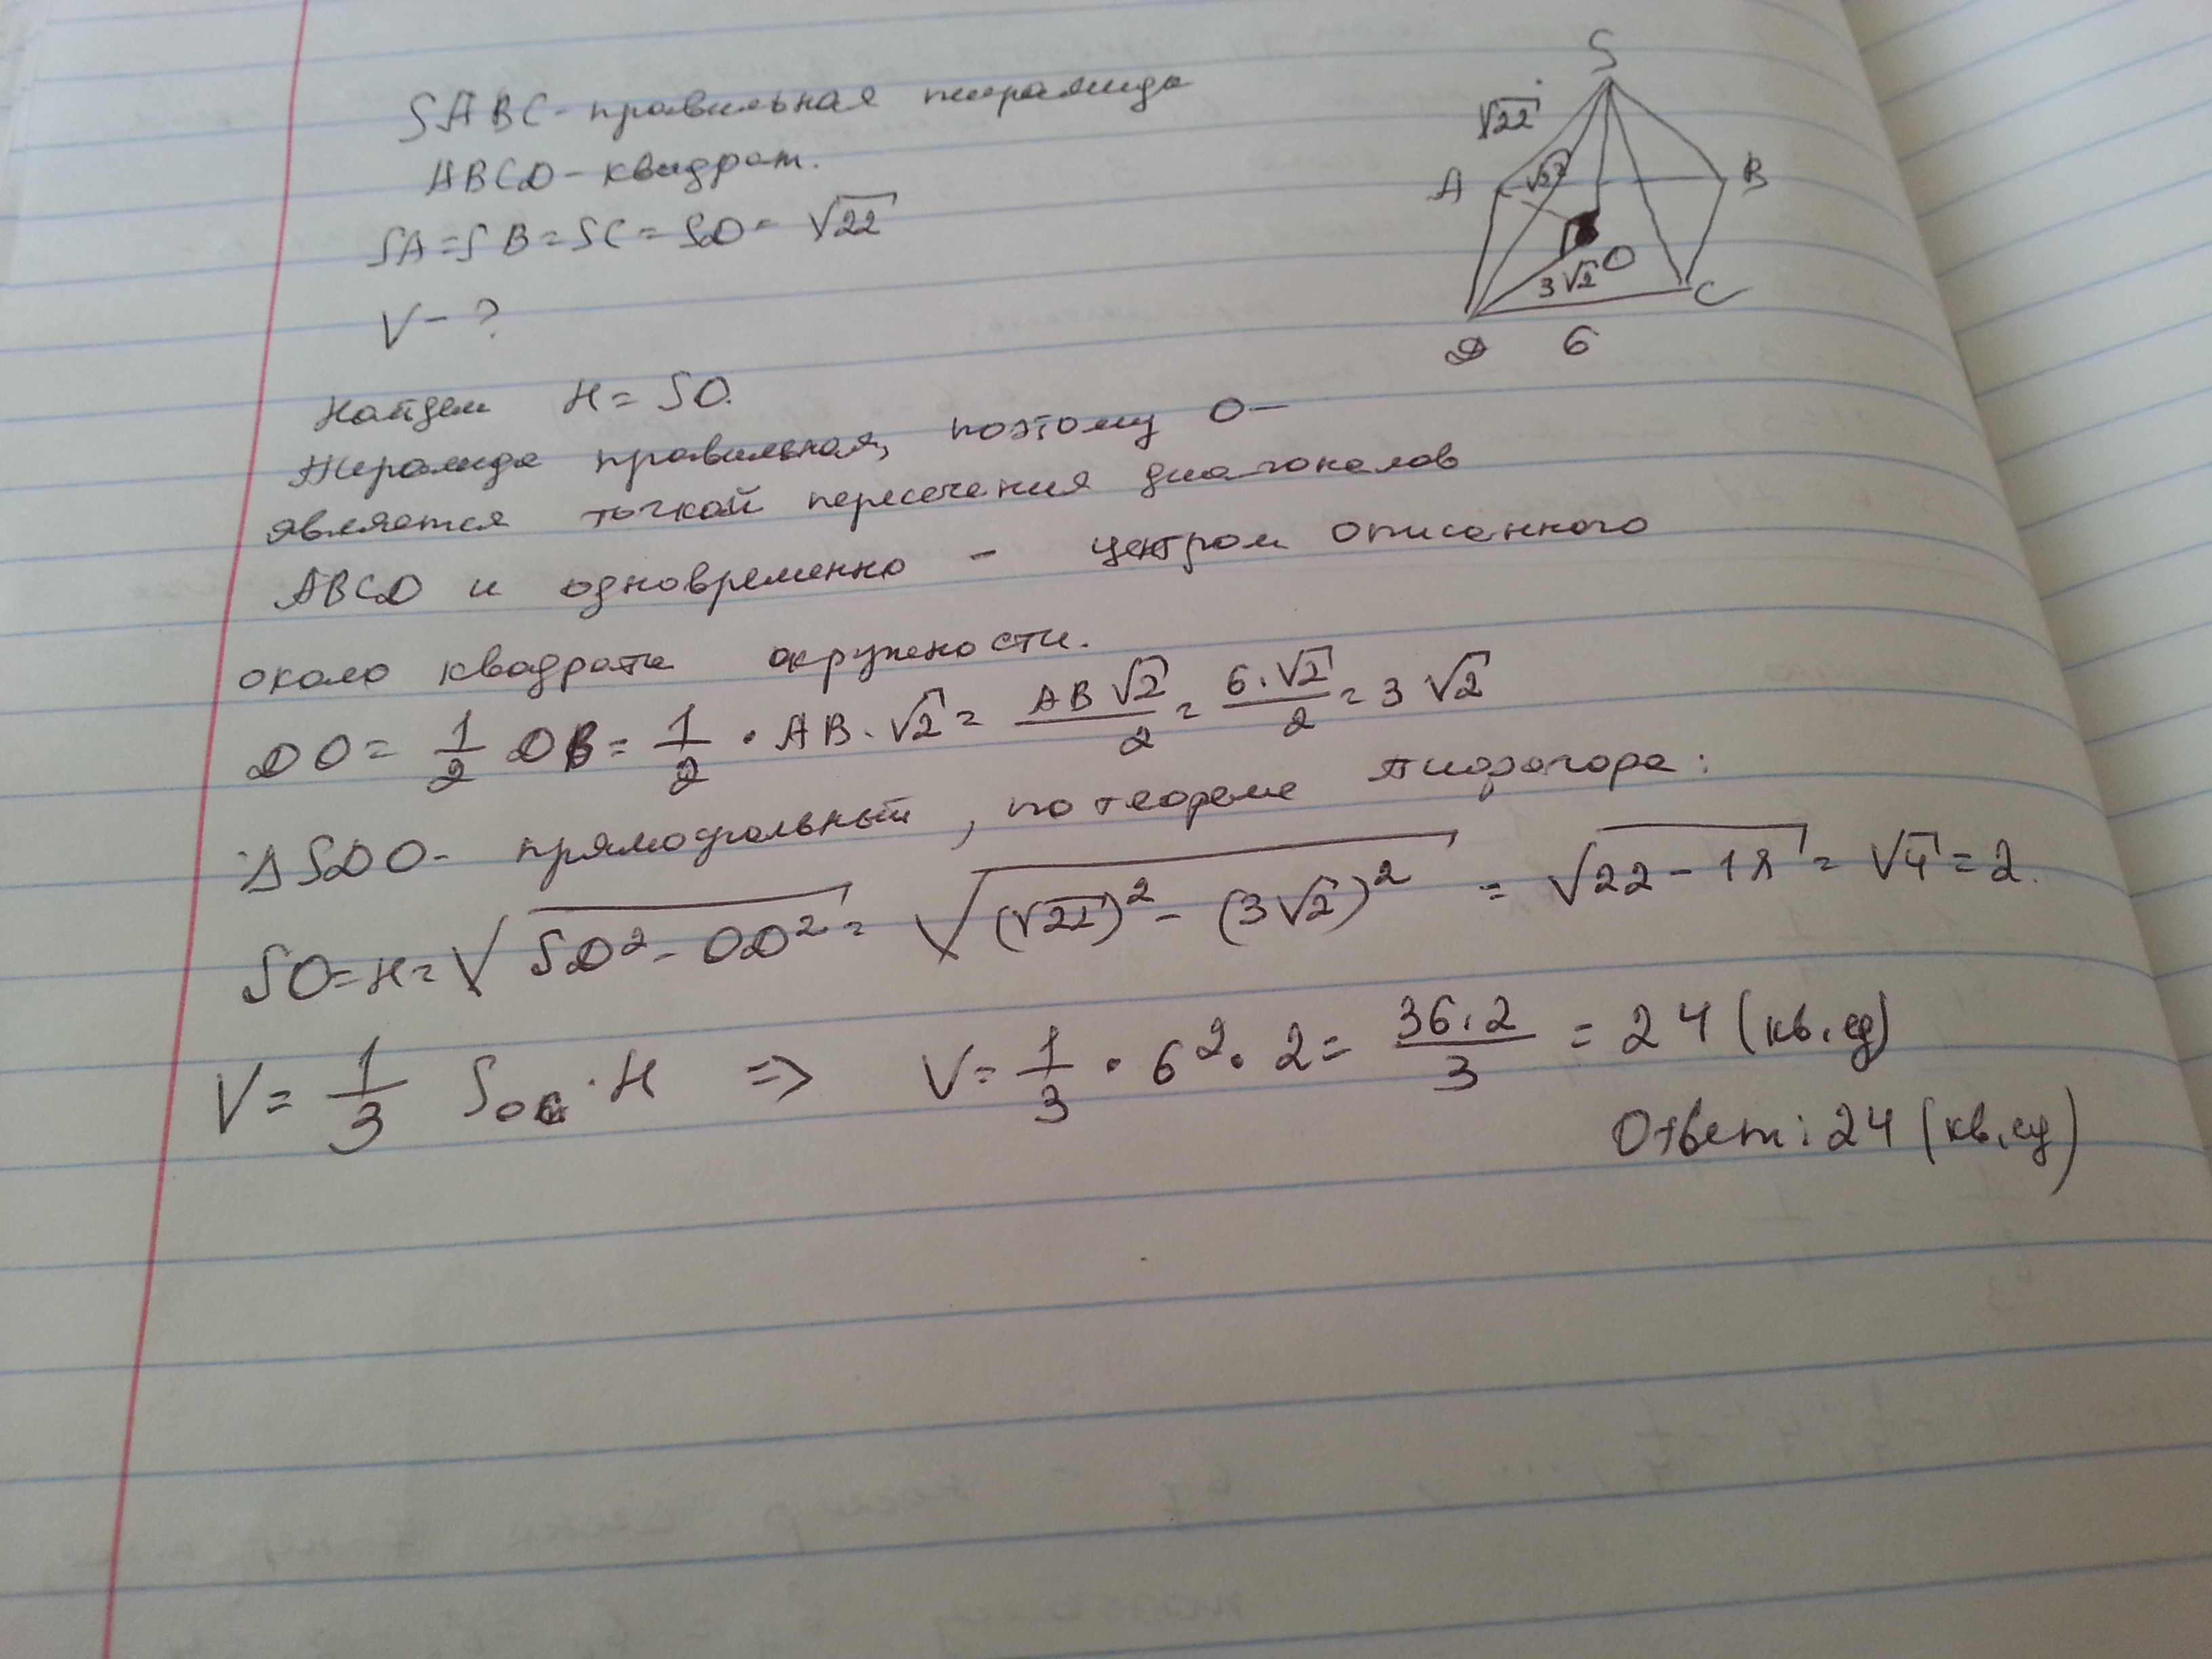 SABC - правильная пирамида
ABCD - квадрат.
SA = SB = SC = SD = √22
V - ?
S
√22
A
√22
B
O
3√2
C
D
6
Найдем H = SO.
Пирамида правильная, поэтому O -
является точкой пересечения диагоналов
ABCD и одновременно - центром описанного
около квадрата окружности.
DO = 1/2 DB = 1/2 · AB · √2 = AB√2/2 = 6·√2/2 = 3√2
Δ SDO - прямоугольный, по теореме Пифагора:
SO = H = √(SD² - OD²) = √((√22)² - (3√2)²) = √(22 - 18) = √4 = 2.
V = 1/3 Sосн · H ⇒ V = 1/3 · 6² · 2 = 36·2/3 = 24 (кв.ед)
Ответ: 24 (кв.ед)